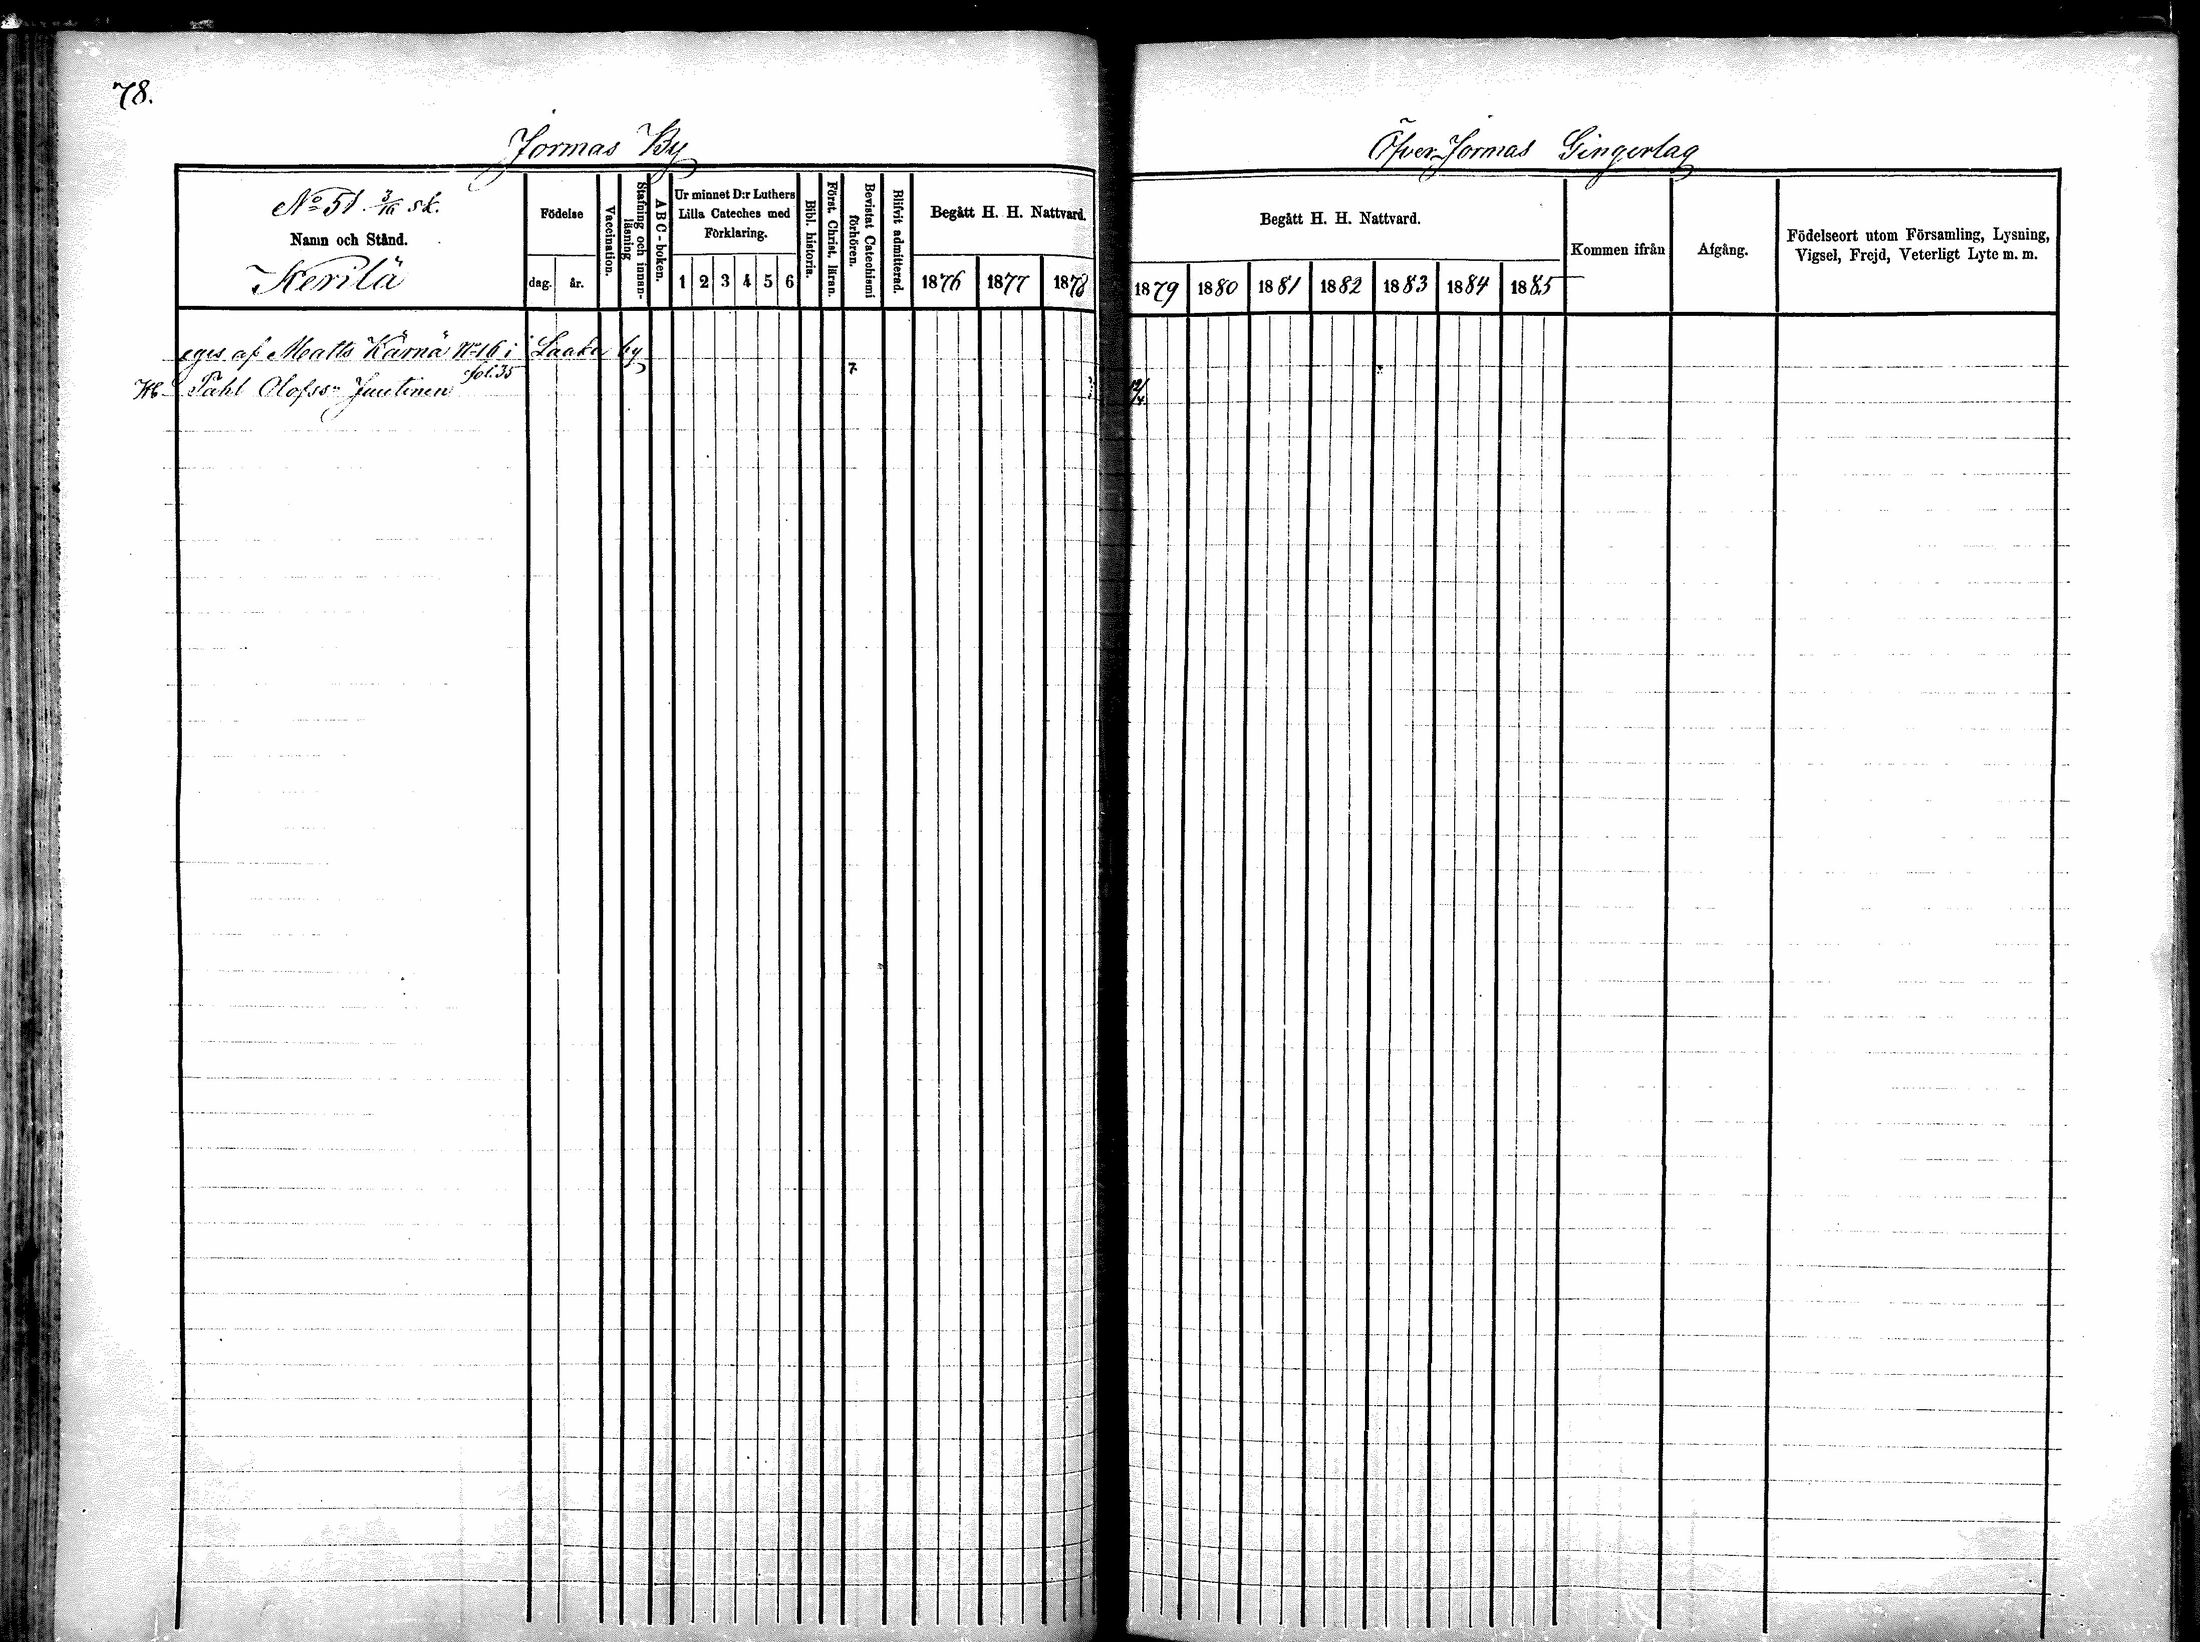 78.
Jormas By
Öfver Jormas Gingerlag
No 51 3/16 sk.
Namn och Stånd.
Kerilä
Födelse
dag. år.
Vaccination.
Stafning och innan-
läsning
A B C-boken.
Ur minnet D:r Luthers
Lilla Cateches med
Förklaring.
1 2 3 4 5 6
Bibl. historia.
Först. Christ. läran.
Bevistat Catechismi
förhören.
Blifvit admitterad.
Begått H. H. Nattvard.
1876 1877 1878
Begått H. H. Nattvard.
1879 1880 1881 1882 1883 1884 1885
Kommen ifrån
Afgång.
Födelseort utom Församling, Lysning,
Vigsel, Frejd, Veterligt Lyte m. m.
eges af Matts Kärnä No 16 i Laaka by
fol. 35
Påhl Olofss. Juntinen
12/4